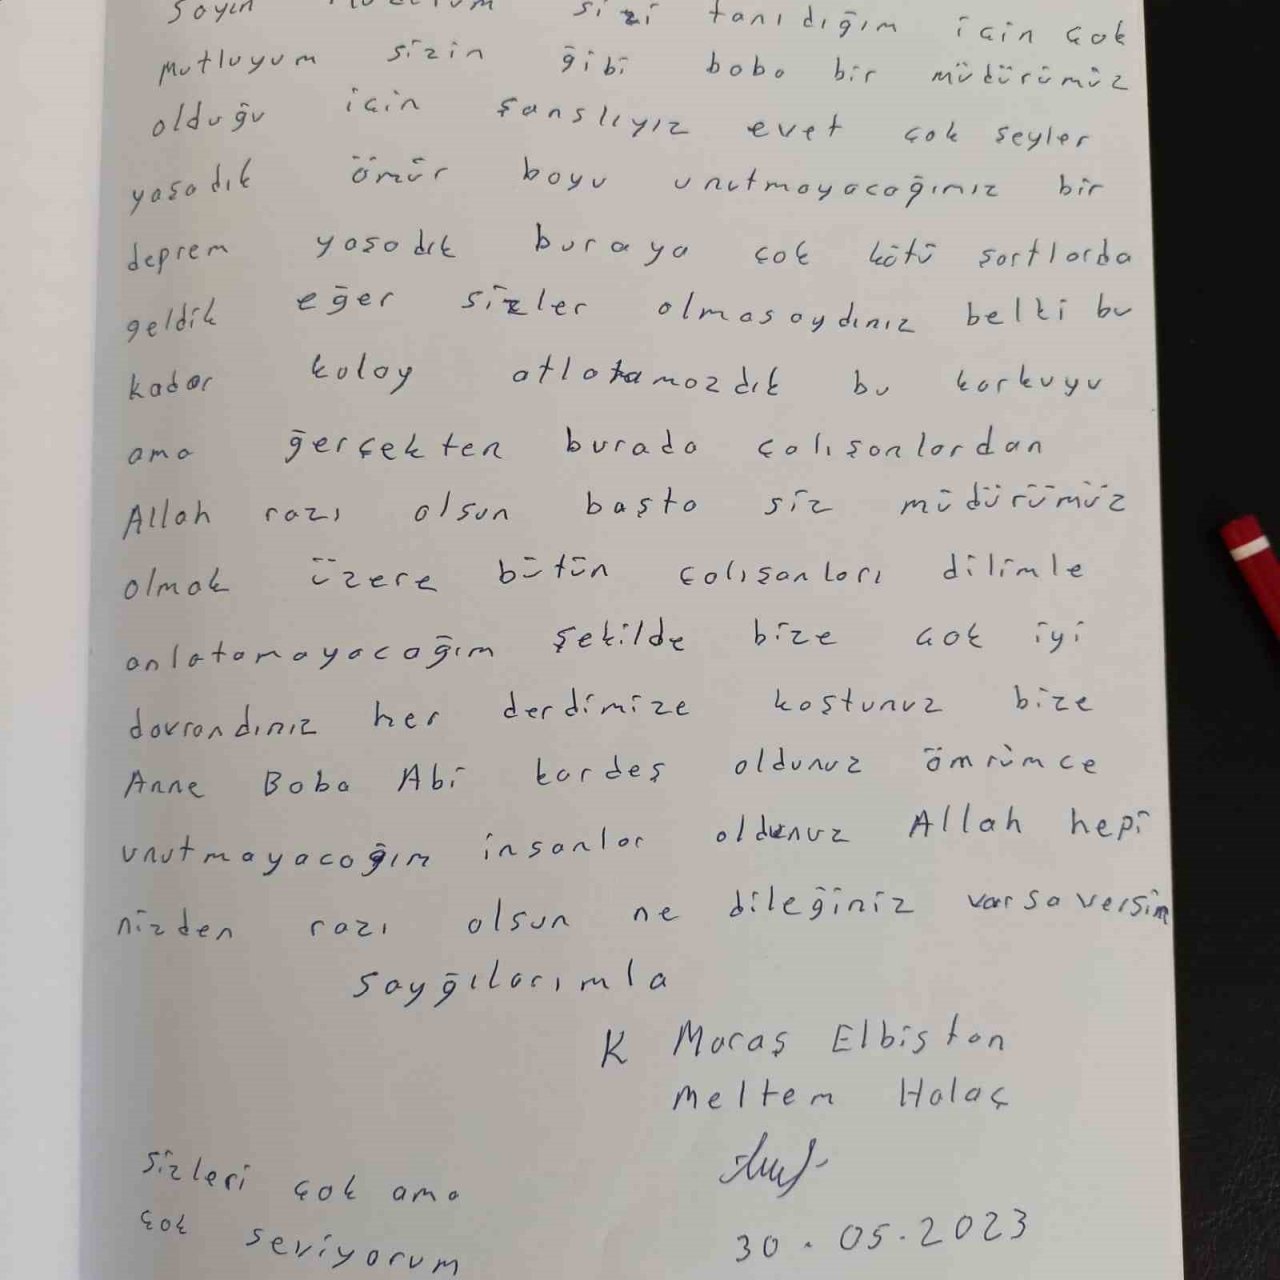 Sayın Müdürüm sizi tanıdığım için çok
mutluyum sizin ğibi baba bir müdürümüz
olduğu için şanslıyız evet çok şeyler
yaşadık ömür boyu unutmayacağımız bir
deprem yaşadık buraya çok kötü şartlarda
geldik eğer sizler olmasaydınız belki bu
kadar kolay atlatamazdık bu korkuyu
ama ğerçekten burada çalışanlardan
Allah razı olsun başta siz müdürümüz
olmak üzere bütün çalışanları dilimle
anlatamayacağım şekilde bize çok iyi
davrandınız her derdimize koştunuz bize
Anne Baba Abi kardeş oldunuz ömrümce
unutmayacağım insanlar oldunuz Allah hepi
nizden razı olsun ne dileğiniz varsa versin
Sayğılarımla
K Maraş Elbistan
Meltem Halaç
30.05.2023
Sizleri çok ama
çok seviyorum